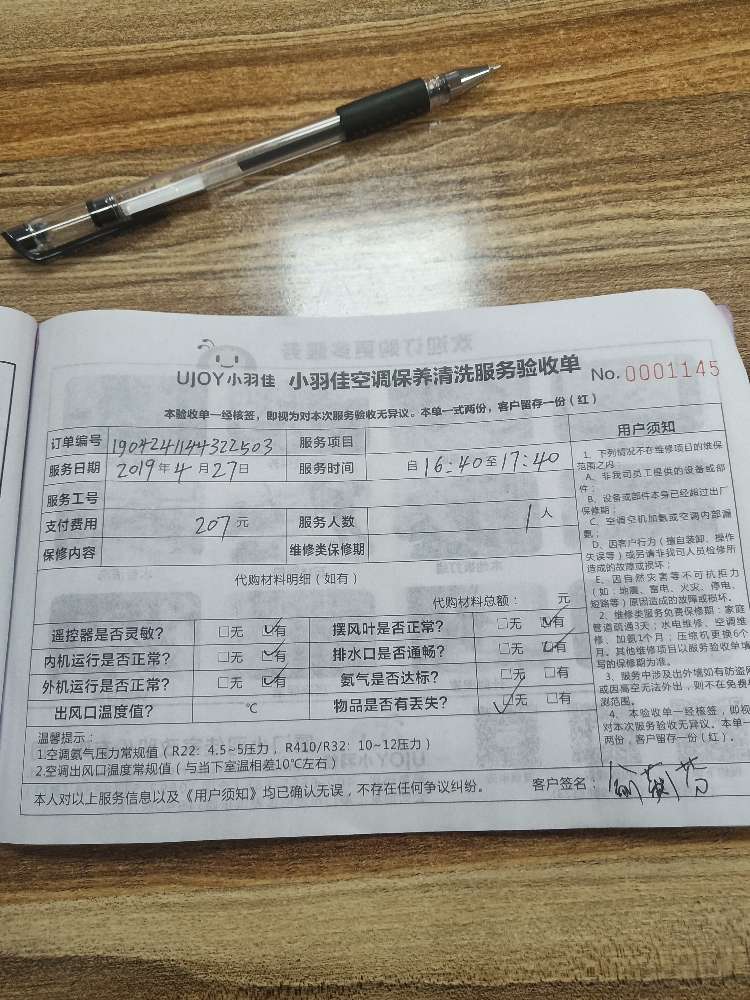 UJOY小羽佳 小羽佳空调保养清洗服务验收单 No. 0001145
本验收单一经核签，即视为对本次服务验收无异议。本单一式两份，客户留存一份（红）
订单编号 1904241144322503 服务项目
服务日期 2019年4月27日 服务时间 自16:40至17:40
服务工号
支付费用 207元 服务人数 1人
保修内容 维修类保修期
代购材料明细（如有）
代购材料总额： 元
遥控器是否灵敏？ □无 ☑有 摆风叶是否正常？ □无 ☑有
内机运行是否正常？ □无 ☑有 排水口是否通畅？ □无 ☑有
外机运行是否正常？ □无 ☑有 氨气是否达标？ □无 □有
出风口温度值？ ℃ 物品是否有丢失？ ☑无 □有
温馨提示：
1.空调氨气压力常规值（R22：4.5~5压力，R410/R32：10~12压力）
2.空调出风口温度常规值（与当下室温相差10℃左右）
本人对以上服务信息以及《用户须知》均已确认无误，不存在任何争议纠纷。 客户签名：
用户须知
1、下列情况不在维修项目的维保
范围之内：
A、非我司员工提供的设备或部
件；
B、设备或部件本身已经超过出厂
保修期；
C、空调空机加氨或空调内部漏
氨；
D、因客户行为（擅自装卸、操作
失误等）或另请非我司人员检修所
造成的故障或损坏；
E、因自然灾害等不可抗拒力
（如：地震、雷电、火灾、停电、
短路等）原因造成的故障或损坏。
2、维修类服务免费保修期：家庭
管道疏通3天；水电维修、空调维
修、加氨1个月；压缩机更换6个
月。其他维修项目以服务验收单填
写的保修期为准。
3、服务中涉及出外墙如有防盗网
或因高空无法外出，则不在免费检
测范围。
4、本验收单一经核签，即视
对本次服务验收无异议。本单一
两份，客户留存一份（红）。